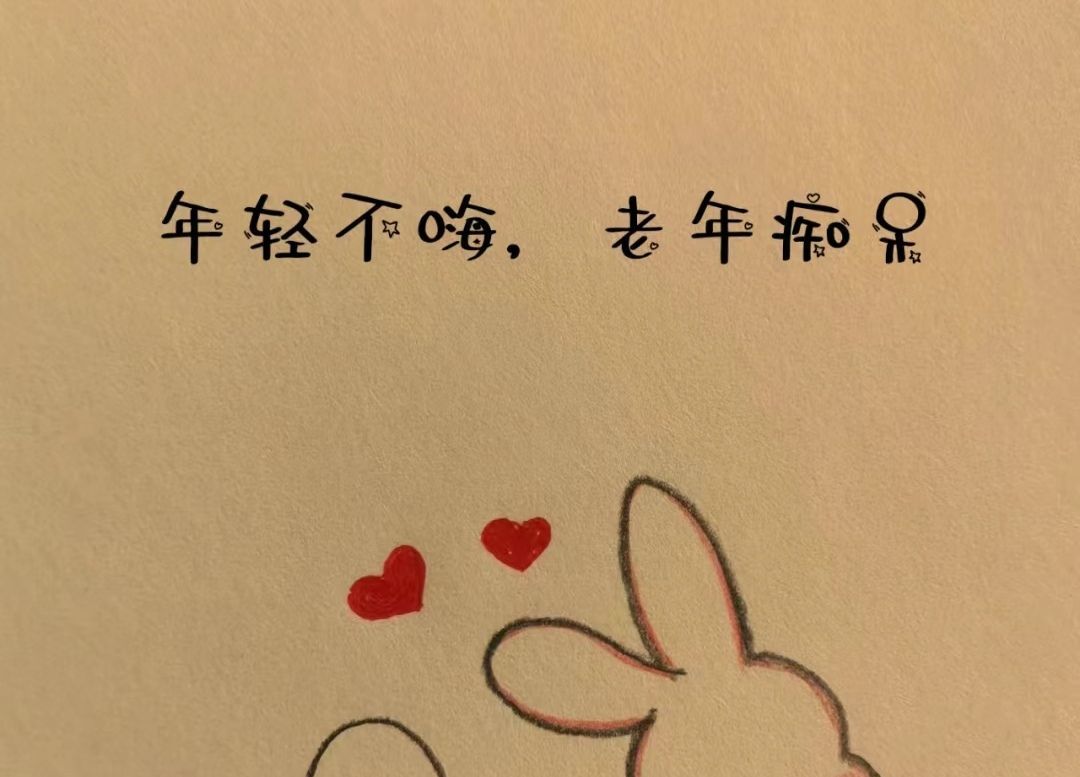 年轻不嗨，老年痴呆